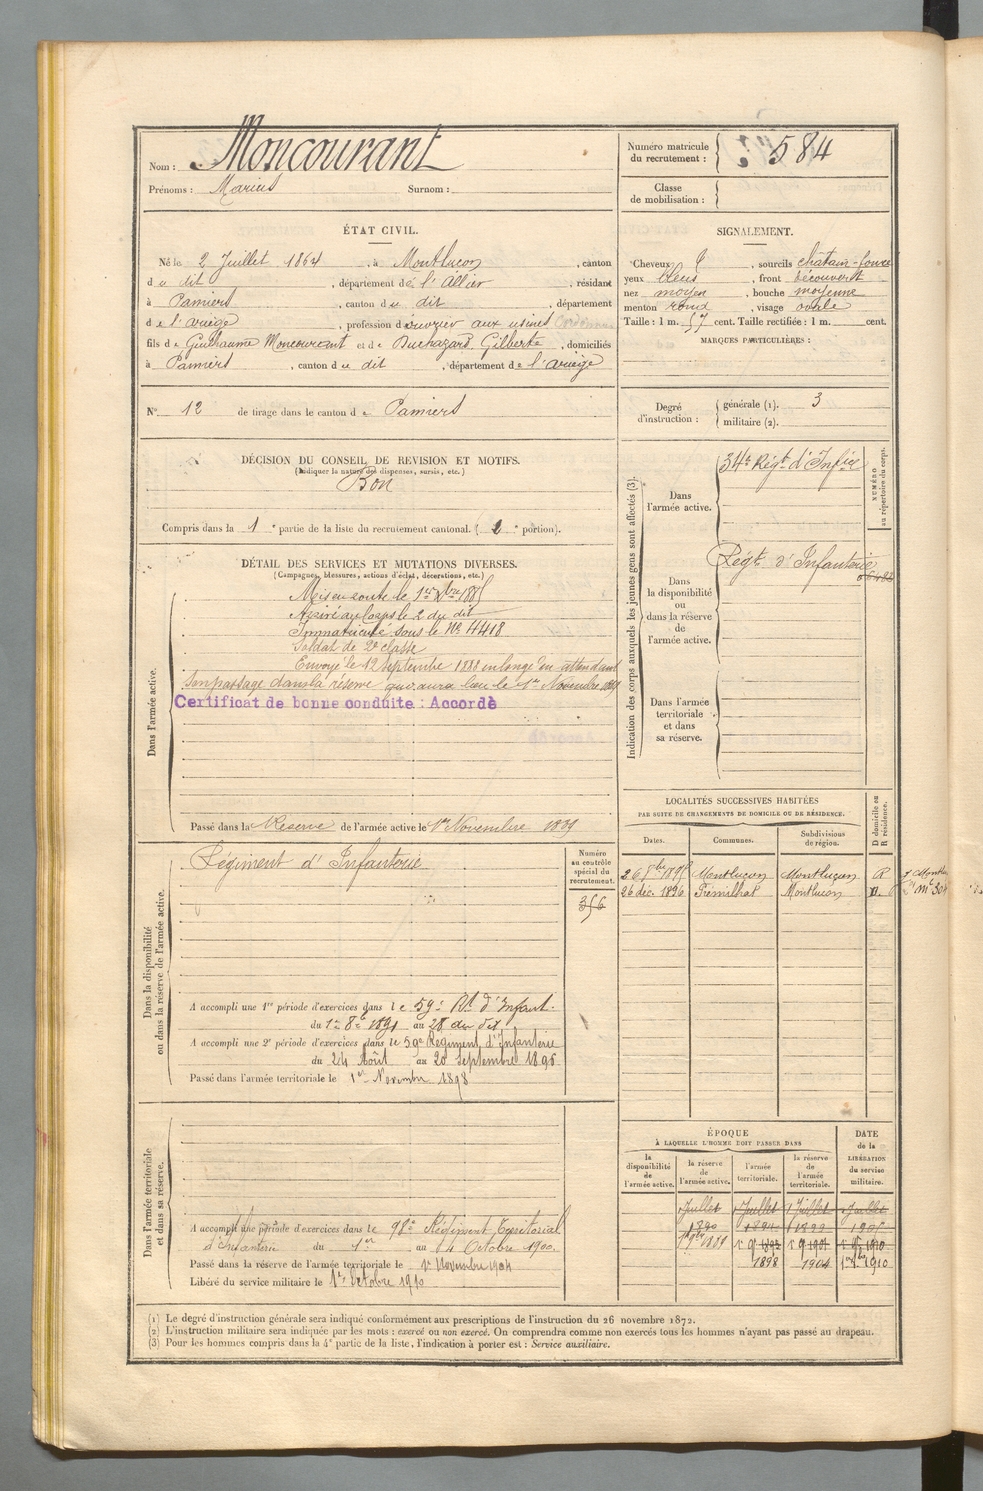 Nom : Moncourant
Prénoms : Marius Surnom :
Numéro matricule du recrutement : 584
Classe de mobilisation :
ÉTAT CIVIL.
Né le 2 Juillet 1864, à Montluçon, canton
du dit, département de l'Allier, résidant
à Pamiers, canton du dit, département
de l'ariège, profession d'ouvrier aux usines
fils de Guillaume Moncourant et de Duchazard Gilberte, domiciliés
à Pamiers, canton du dit, département de l'ariège
N° 12 de tirage dans le canton de Pamiers
SIGNALEMENT.
Cheveux, sourcils châtain-foncé
yeux bleus, front découvert
nez moyen, bouche moyenne
menton rond, visage ovale
Taille : 1 m. 57 cent. Taille rectifiée : 1 m. cent.
MARQUES PARTICULIÈRES :
Degré d'instruction : générale (1). 3
militaire (2).
DÉCISION DU CONSEIL DE REVISION ET MOTIFS.
(Indiquer la nature des dispenses, sursis, etc.)
Bon
Compris dans la 1e partie de la liste du recrutement cantonal. (2e portion).
DÉTAIL DES SERVICES ET MUTATIONS DIVERSES.
(Campagnes, blessures, actions d'éclat, décorations, etc.)
Dans l'armée active.
Mis en route le 1er
Arrivé au corps le 2 du dit
Immatriculé sous le N° 4418
Soldat de 2e classe
Envoyé le 12 Septembre 1888 en congé en attendant
son passage dans la réserve qui aura lieu le 1er Novembre 1889
Certificat de bonne conduite : Accordé
Passé dans la Réserve de l'armée active le 1er Novembre 1889
Indication des corps auxquels les jeunes gens sont affectés (3).
NUMÉRO au répertoire du corps.
Dans l'armée active.
34e Régt d'Infie
Dans la disponibilité ou dans la réserve de l'armée active.
Régt d'Infanterie
Dans l'armée territoriale et dans sa réserve.
Dans la disponibilité ou dans la réserve de l'armée active.
Régiment d'Infanterie
Numéro au contrôle spécial du recrutement.
356
A accompli une 1re période d'exercices dans le 59e Rt d'Infant.
du 1er 8bre 1891 au 28 du dit
A accompli une 2e période d'exercices dans le 59e Régiment d'Infanterie
du 24 Août au 20 Septembre 1896
Passé dans l'armée territoriale le 1er Novembre 1898
LOCALITÉS SUCCESSIVES HABITÉES
PAR SUITE DE CHANGEMENTS DE DOMICILE OU DE RÉSIDENCE.
Dates. Communes. Subdivisions de région. D domicile ou R résidence.
Montluçon Montluçon R
26 déc. 1896 Prémilhat Montluçon D.
Dans l'armée territoriale et dans sa réserve.
A accompli une période d'exercices dans le 98e Régiment Territorial
d'Infanterie du 1er au 14 Octobre 1900.
Passé dans la réserve de l'armée territoriale le 1er Novembre 1904
Libéré du service militaire le 1er Octobre 1910
ÉPOQUE
À LAQUELLE L'HOMME DOIT PASSER DANS
DATE de la LIBÉRATION du service militaire.
la disponibilité de l'armée active. la réserve de l'armée active. l'armée territoriale. la réserve de l'armée territoriale.
Juillet 1 Juillet 1 Juillet 1 Juillet
1890
1889
1898 1904 1910
(1) Le degré d'instruction générale sera indiqué conformément aux prescriptions de l'instruction du 26 novembre 1872.
(2) L'instruction militaire sera indiquée par les mots : exercé ou non exercé. On comprendra comme non exercés tous les hommes n'ayant pas passé au drapeau.
(3) Pour les hommes compris dans la 4e partie de la liste, l'indication à porter est : Service auxiliaire.